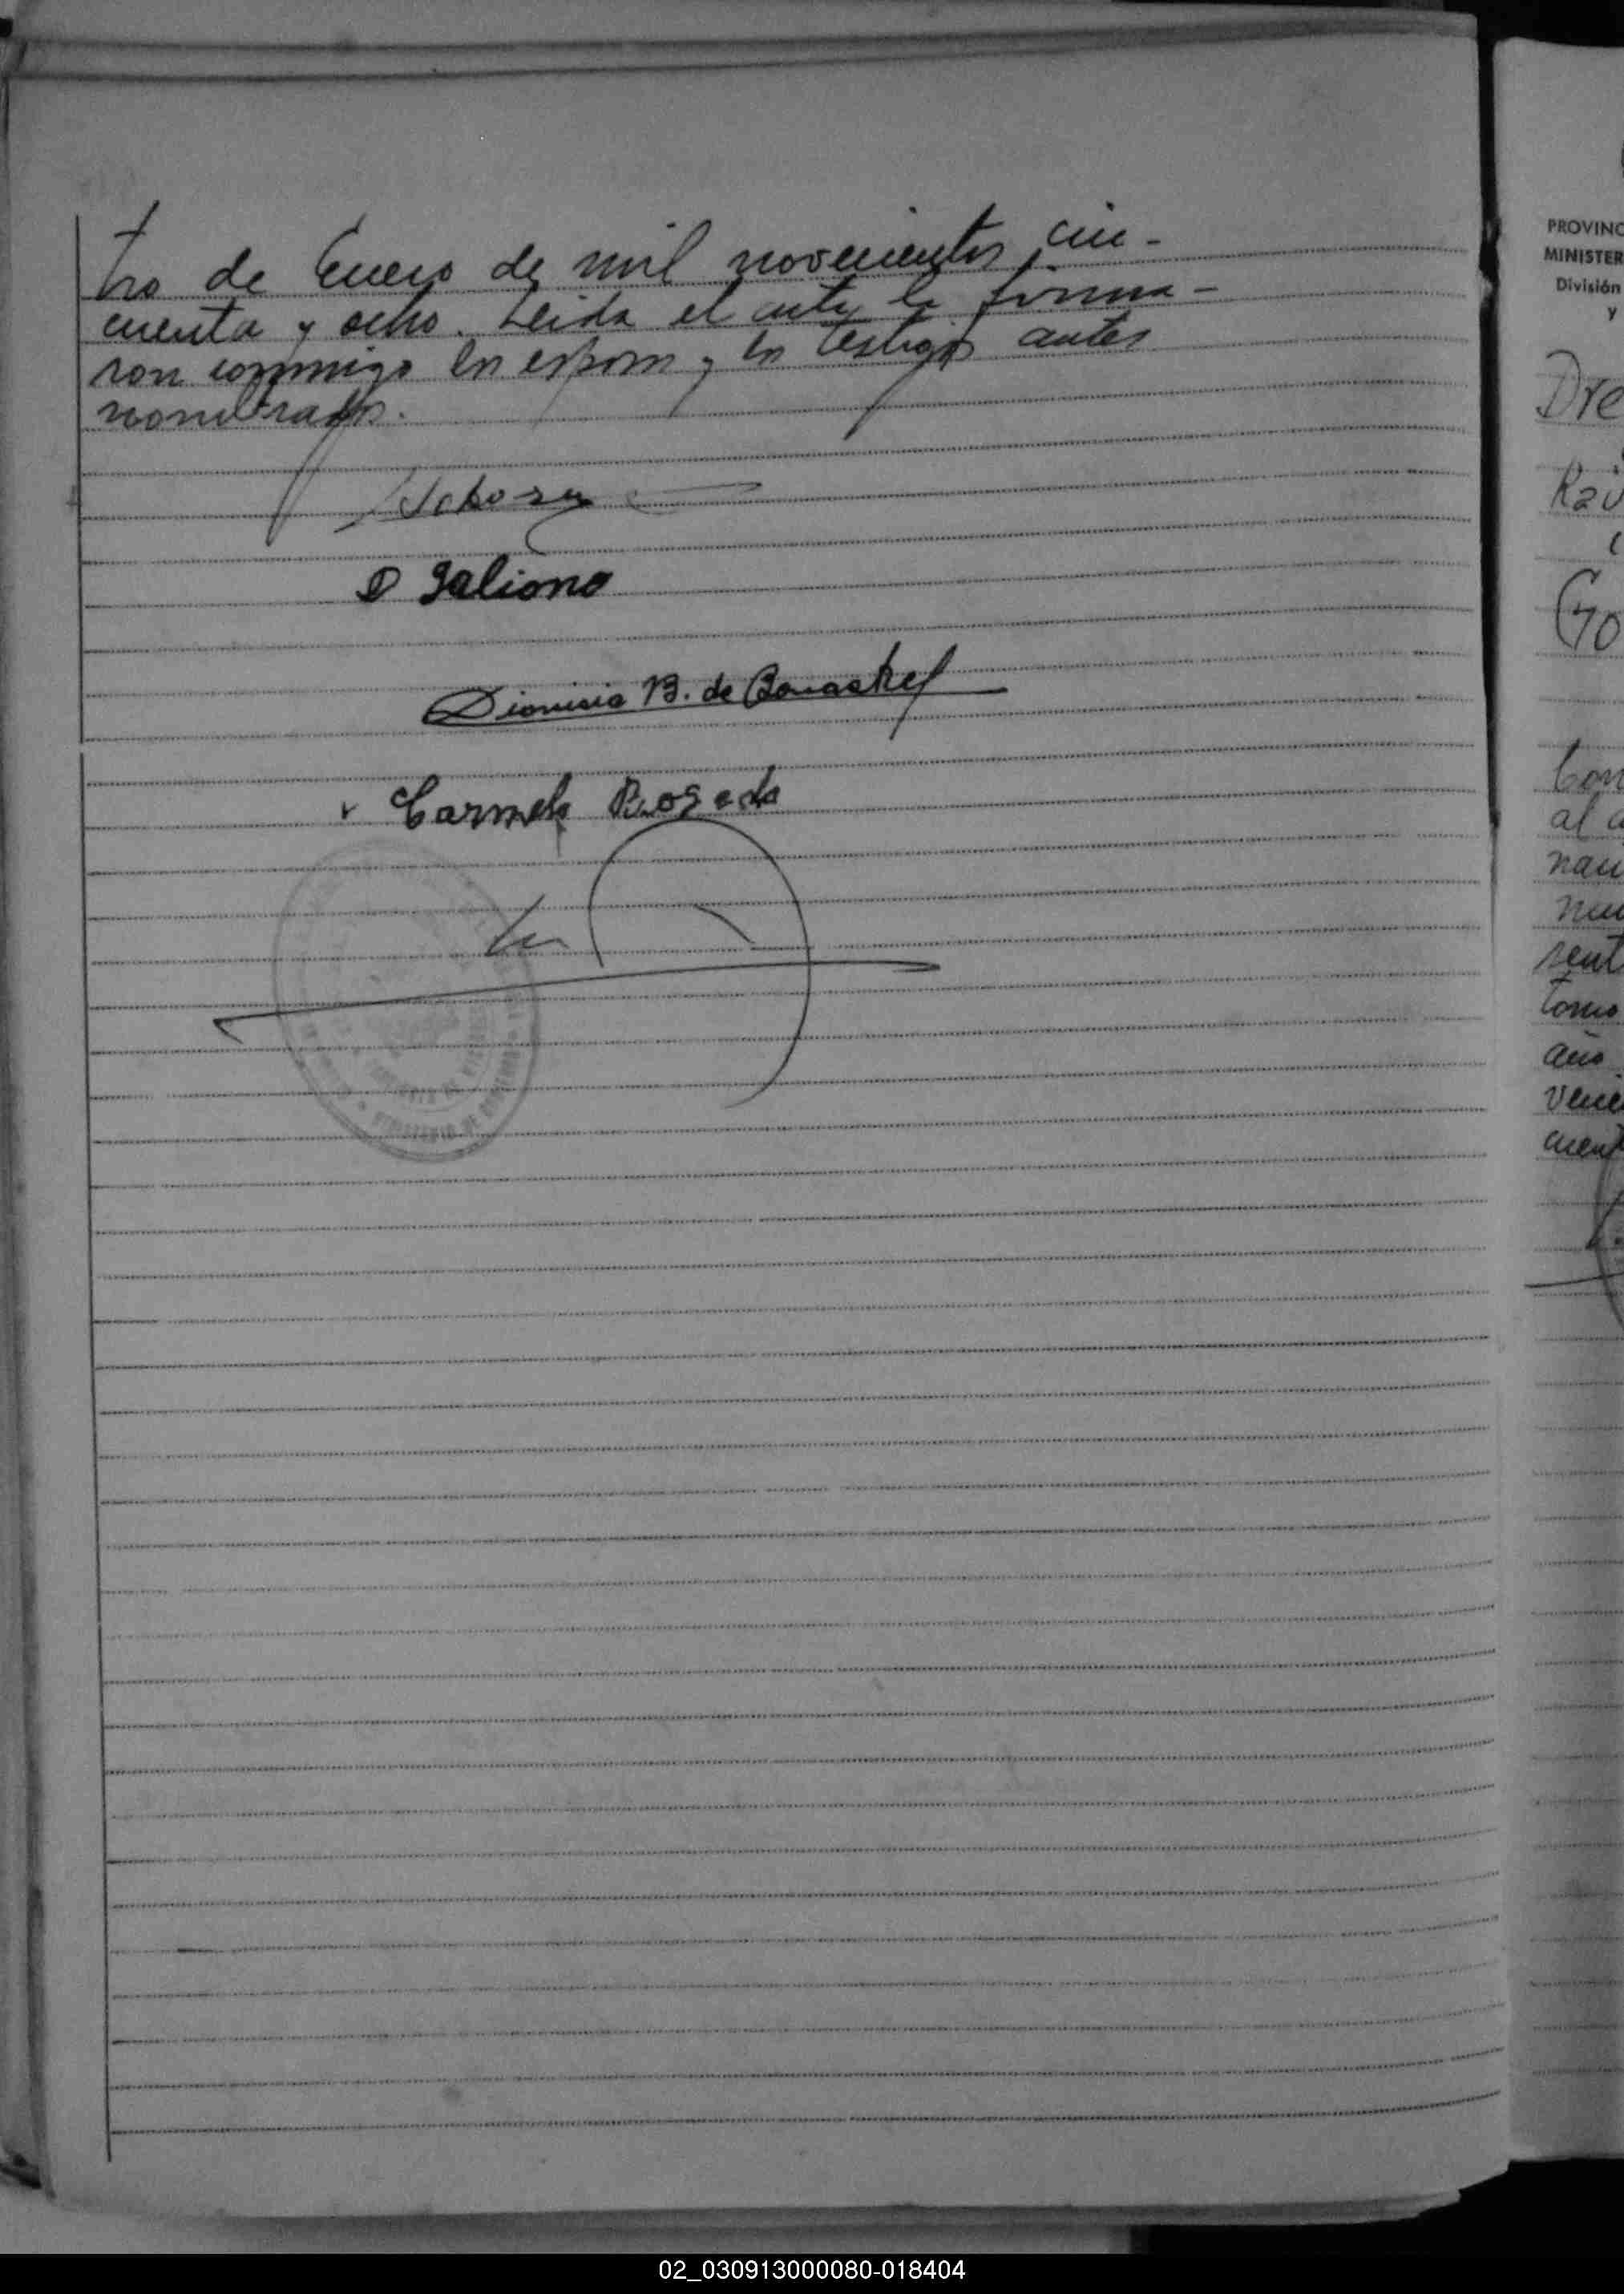 tro de Enero de mil novecientos cin-
cuenta y ocho. Leida el acta la firma-
ron conmigo los esposos y los testigos antes
nombrados.
D Galiono
Dionisia B. de Bonastre
Carmela Posada
PROVINC
MINISTER
División
y
Dre
Rau
(40
Con
al a
naci
nue
sent
tomo
año
veni
cuent
02_030913000080-018404